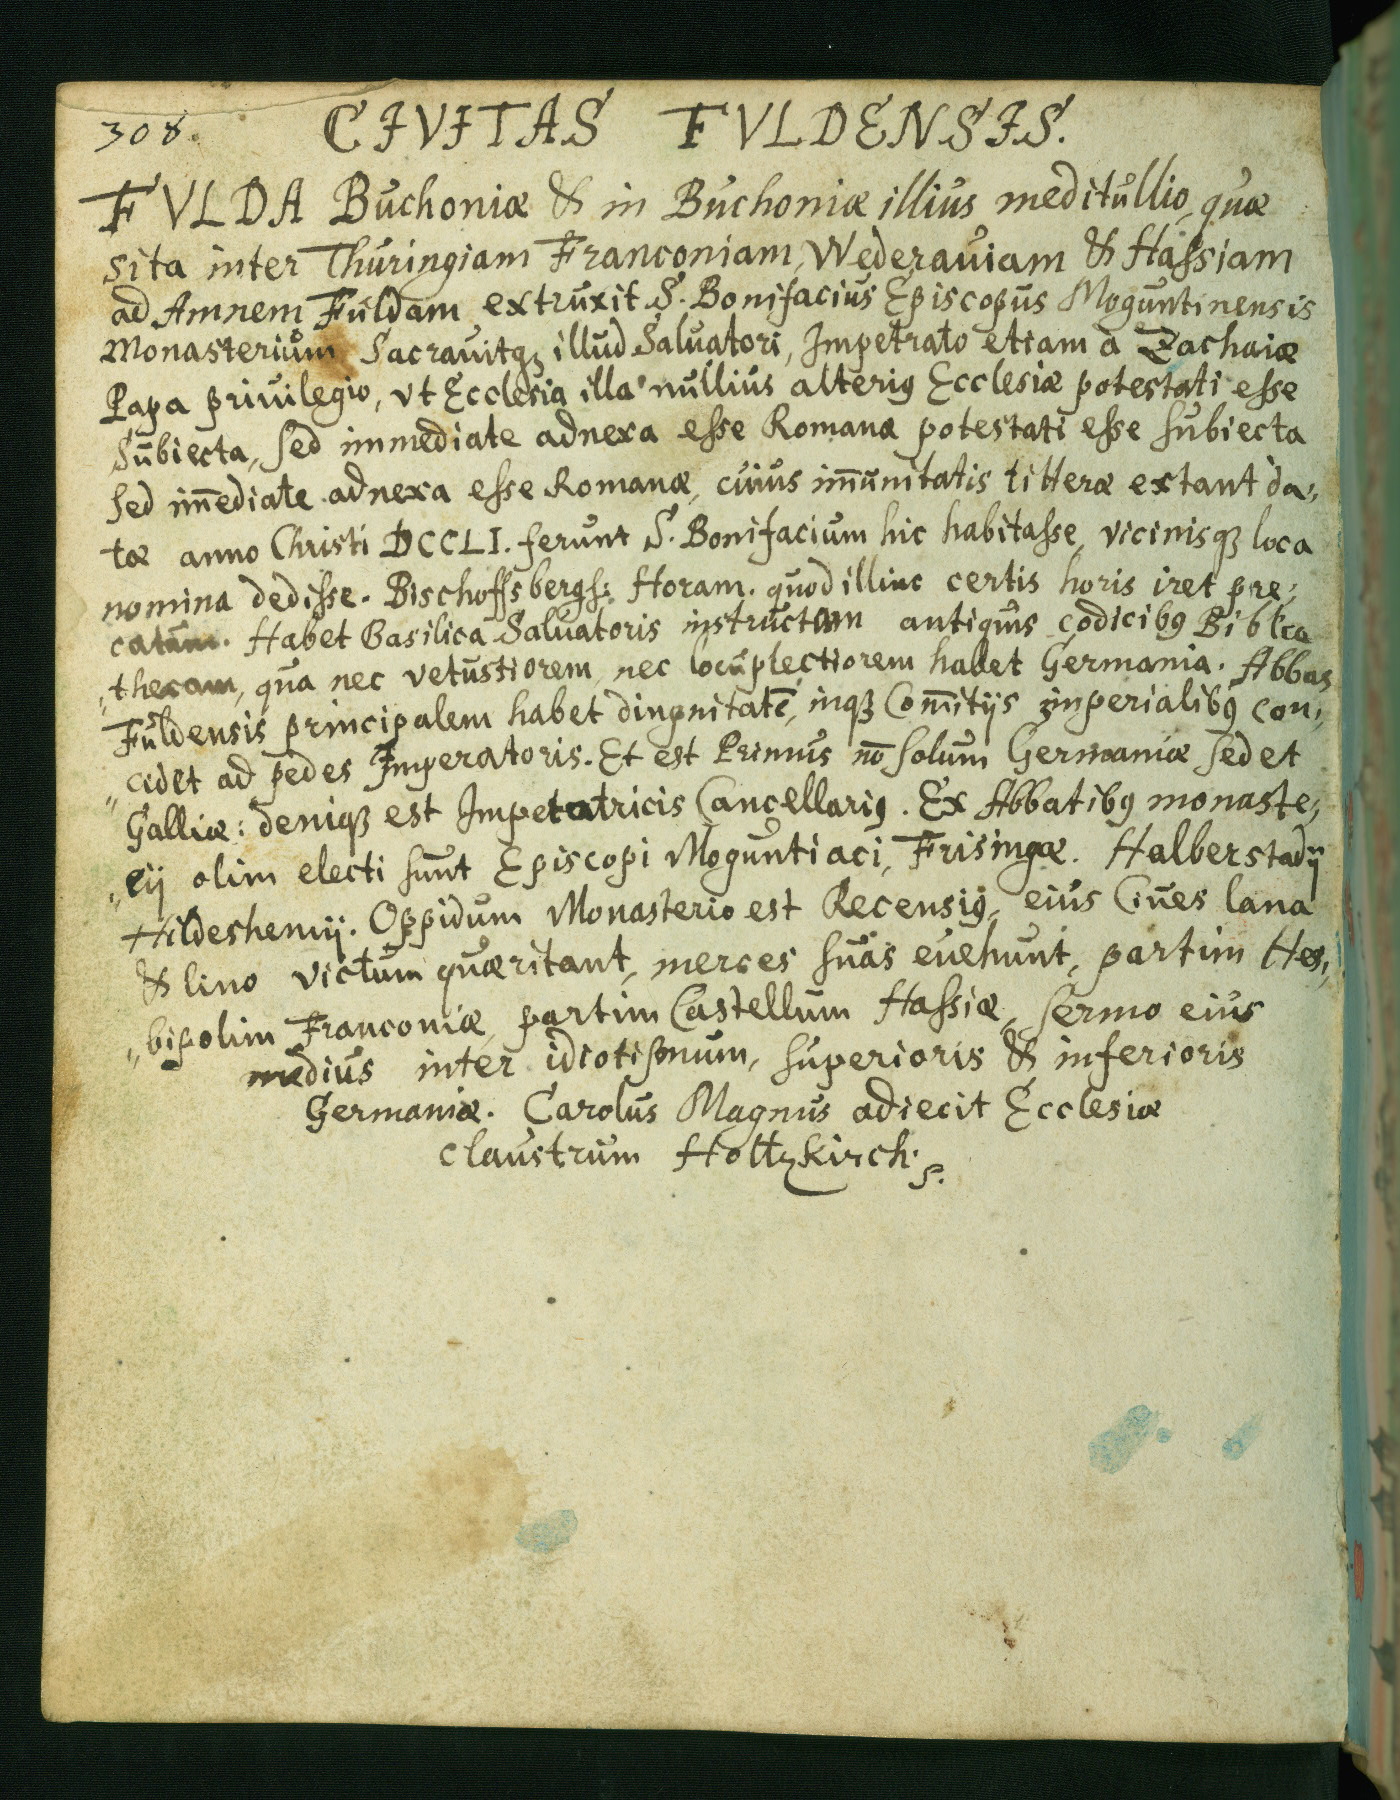 308. CIVITAS FVLDENSIS.
FVLDA Buchoniæ & in Buchoniæ illius meditullio, quæ
sita inter Thuringiam Franconiam, Wederauiam & Haſsiam
ad Amnem Fuldam extruxit S. Bonifacius Episcopus Moguntinensis
Monasterium Sacrauitqꝫ illud Saluatori, Impetrato etiam a Zachaiæ
Papa priuilegio, vt Ecclesia illa nullius alteriꝰ Ecclesiæ potestati eſse
Subiecta, ſed immediate adnexa eſse Romanæ potestati eſse ſubiecta
ſed im̄ediate adnexa eſse Romanæ, cuius im̄unitatis litteræ extant da„
tæ anno Christi DCCLI. ferunt S. Bonifacium hic habitaſse, vicinisqꝫ loca
nomina dediſse. Bischoffsbergſ: Horam. quod illinc certis horis iret pre„
catum. Habet Basilica Saluatoris instructam antiquis codicibꝰ Biblio
„thecam, qua nec vetustiorem nec locuplectiorem habet Germania. Abbas
Fuldensis principalem habet dingnitatē, inqꝫ Com̄itijs imperialibꝰ con„
„cidet ad pedes Imperatoris. Et est Primus nō ſolum Germaniæ ſed et
Galliæ: deniqꝫ est Impetatricis Cancellariꝰ. Ex Abbatibꝰ monaste„
„rij olim electi ſunt Episcopi Moguntiaci, Frisingæ. Halberstadij
Hildeshemij. Oppidum Monasterio est Recensiꝰ, eius Ciues lana
& lino victum quæritant, merces ſuas euehunt, partim Her„
„bipolim Franconiæ, partim Castellum Haſsiæ, ſermo eius
medius inter idiotiſmum, ſuperioris & inferioris
Germaniæ. Carolus Magnus adiecit Ecclesiæ
claustrum Holtzkirch.
S.